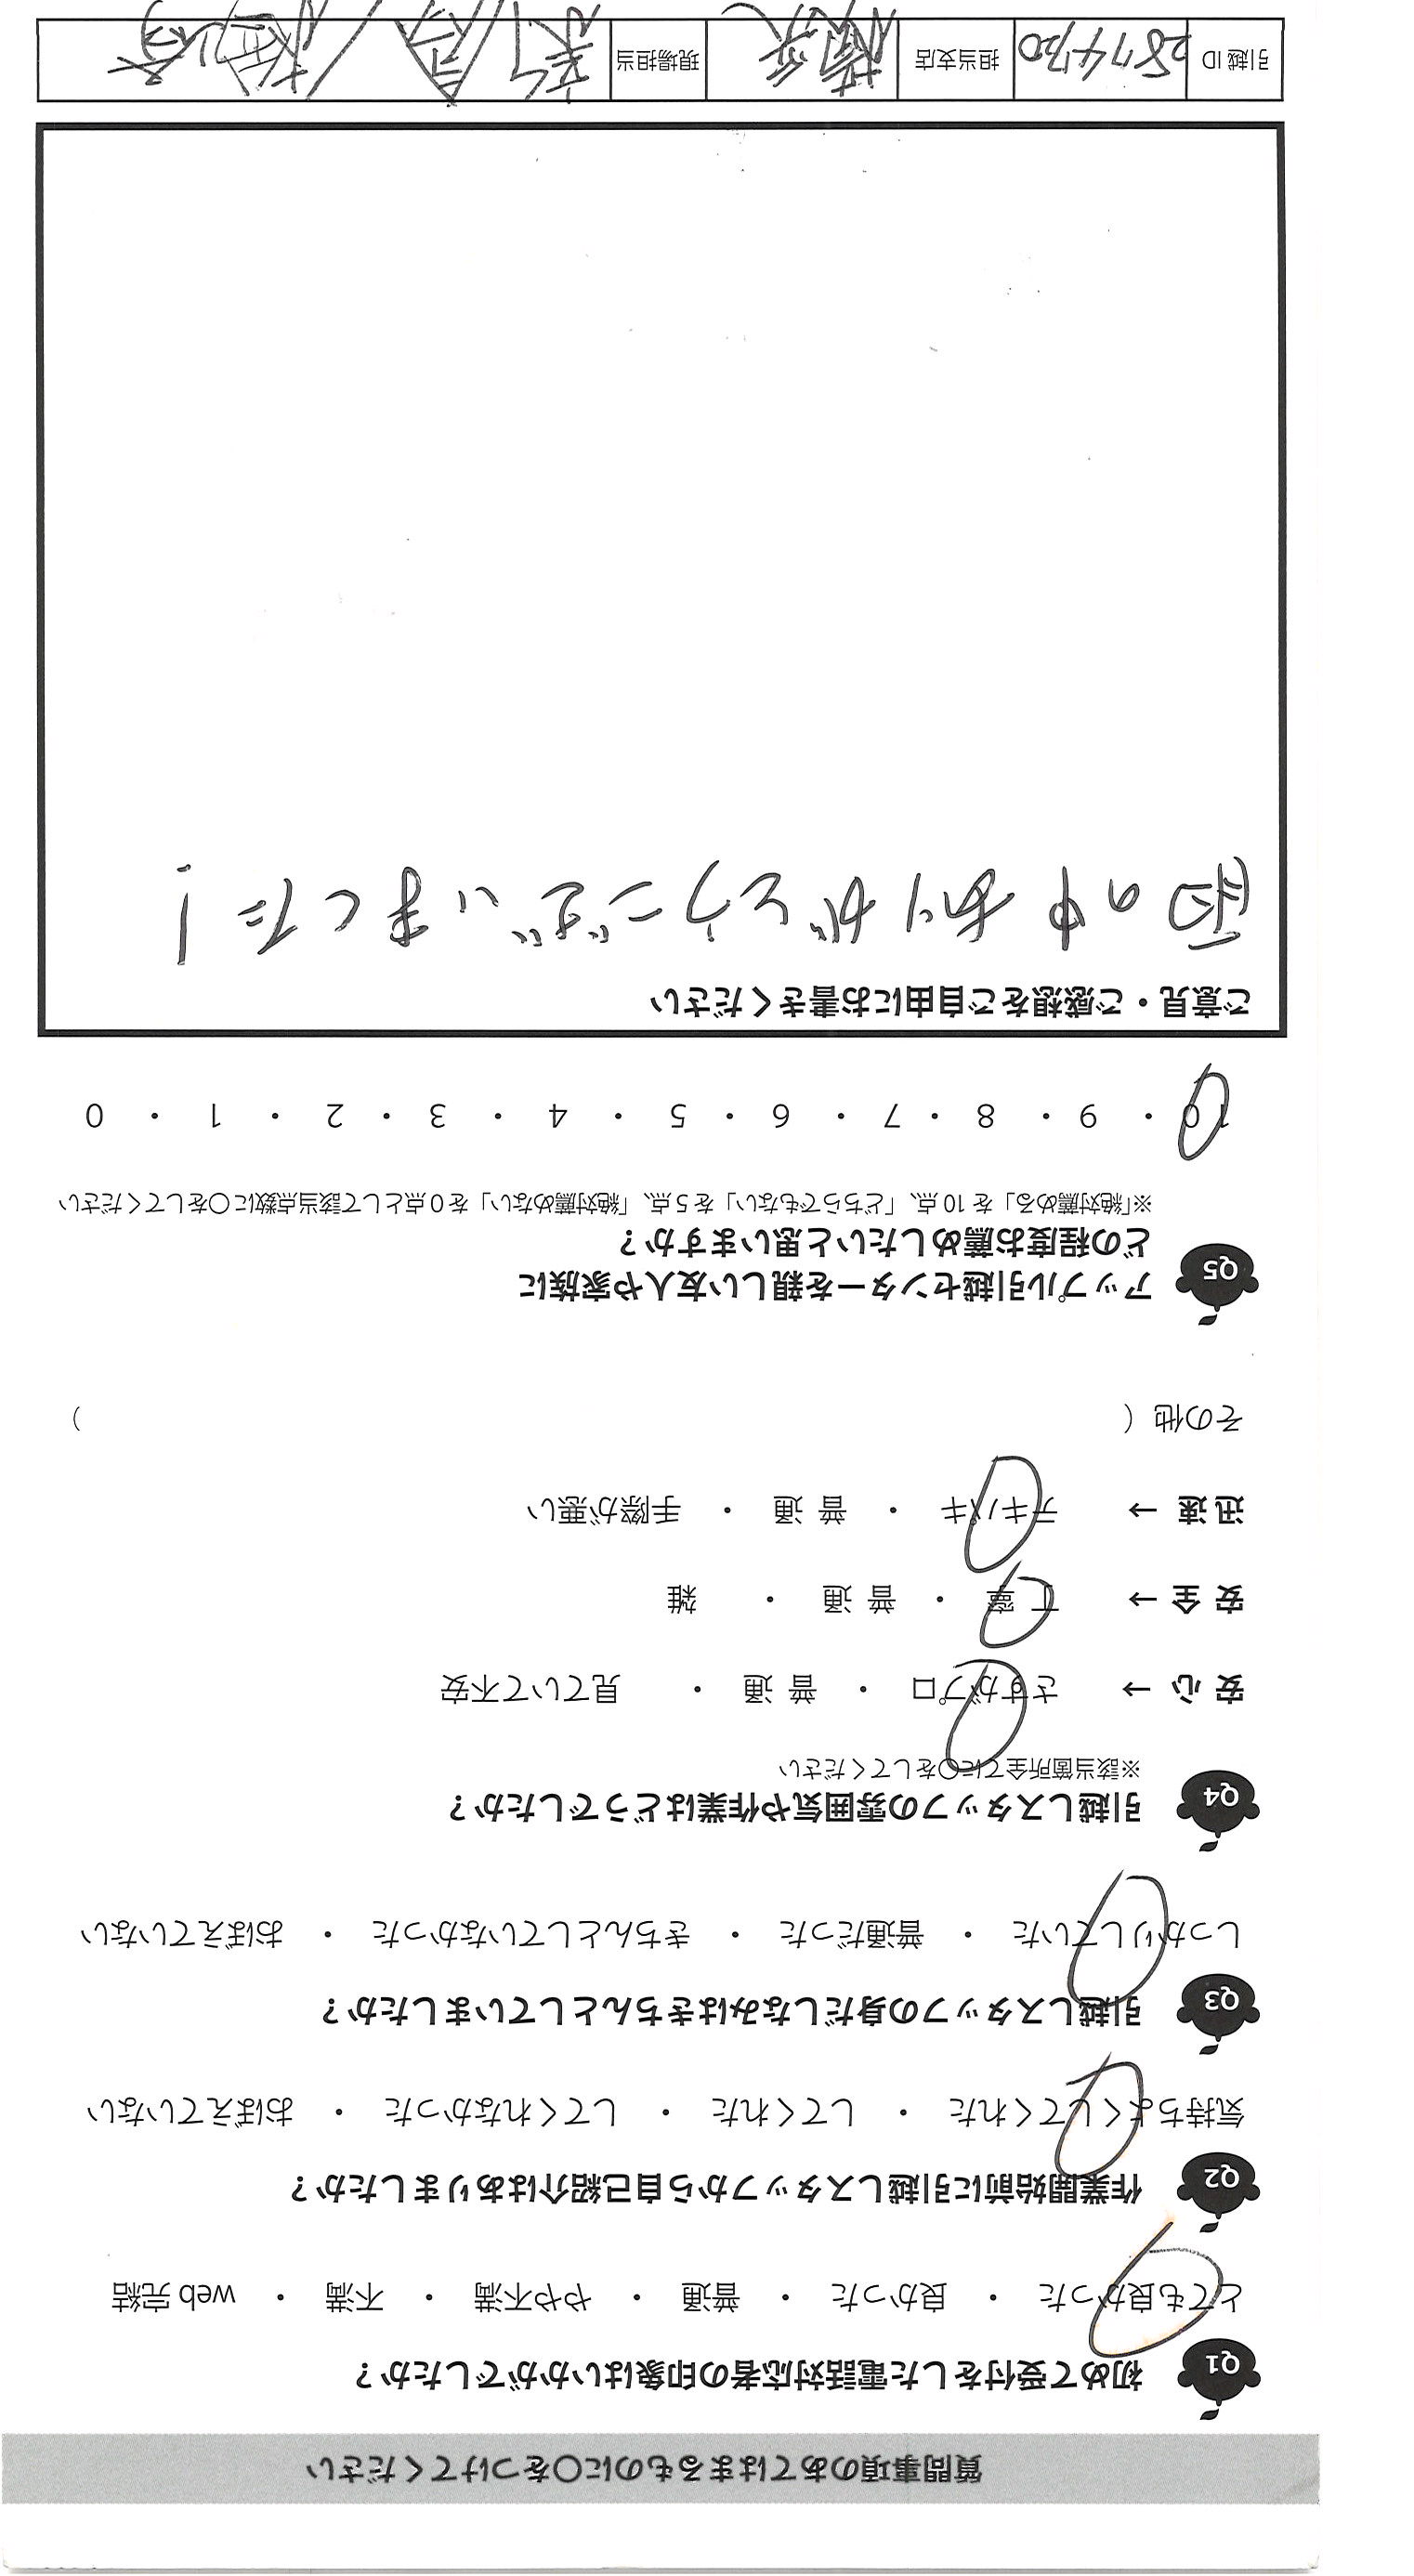 質問事項のあてはまるものに○をつけてください
Q1 初めて受付をした電話対応者の印象はいかがでしたか？
とても良かった ・ 良かった ・ 普通 ・ やや不満 ・ 不満 ・ web完結
Q2 作業開始前に引越しスタッフから自己紹介はありましたか？
気持ちよくしてくれた ・ してくれた ・ してくれなかった ・ おぼえていない
Q3 引越しスタッフの身だしなみはきちんとしていましたか？
しっかりしていた ・ 普通だった ・ きちんとしていなかった ・ おぼえていない
Q4 引越しスタッフの雰囲気や作業はどうでしたか？
※該当箇所全てに○をしてください
安心 → さすがプロ ・ 普通 ・ 見ていて不安
安全 → 丁寧 ・ 普通 ・ 雑
迅速 → テキパキ ・ 普通 ・ 手際が悪い
その他（ ）
Q5 アップル引越センターを親しい友人や家族に
どの程度お薦めしたいと思いますか？
※「絶対薦める」を10点、「どちらでもない」を5点、「絶対薦めない」を0点として該当点数に○をしてください
10 ・ 9 ・ 8 ・ 7 ・ 6 ・ 5 ・ 4 ・ 3 ・ 2 ・ 1 ・ 0
ご意見・ご感想をご自由にお書きください
雨の中ありがとうございました！
引越ID 2874730 担当支店 横浜 現場担当